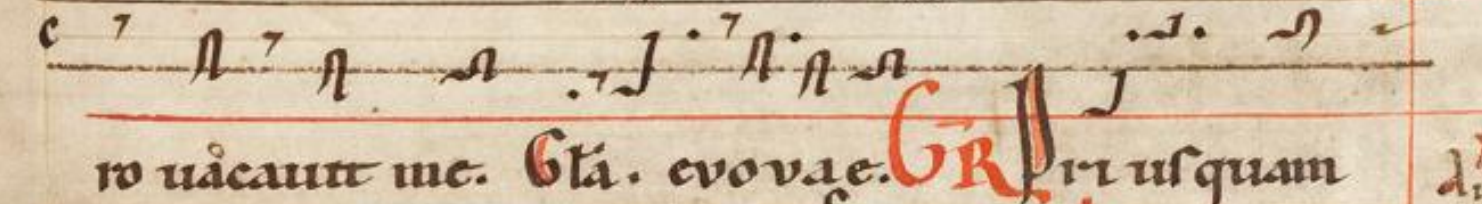 c
ro uacauit me. Gła. evovae. GR Priusquam